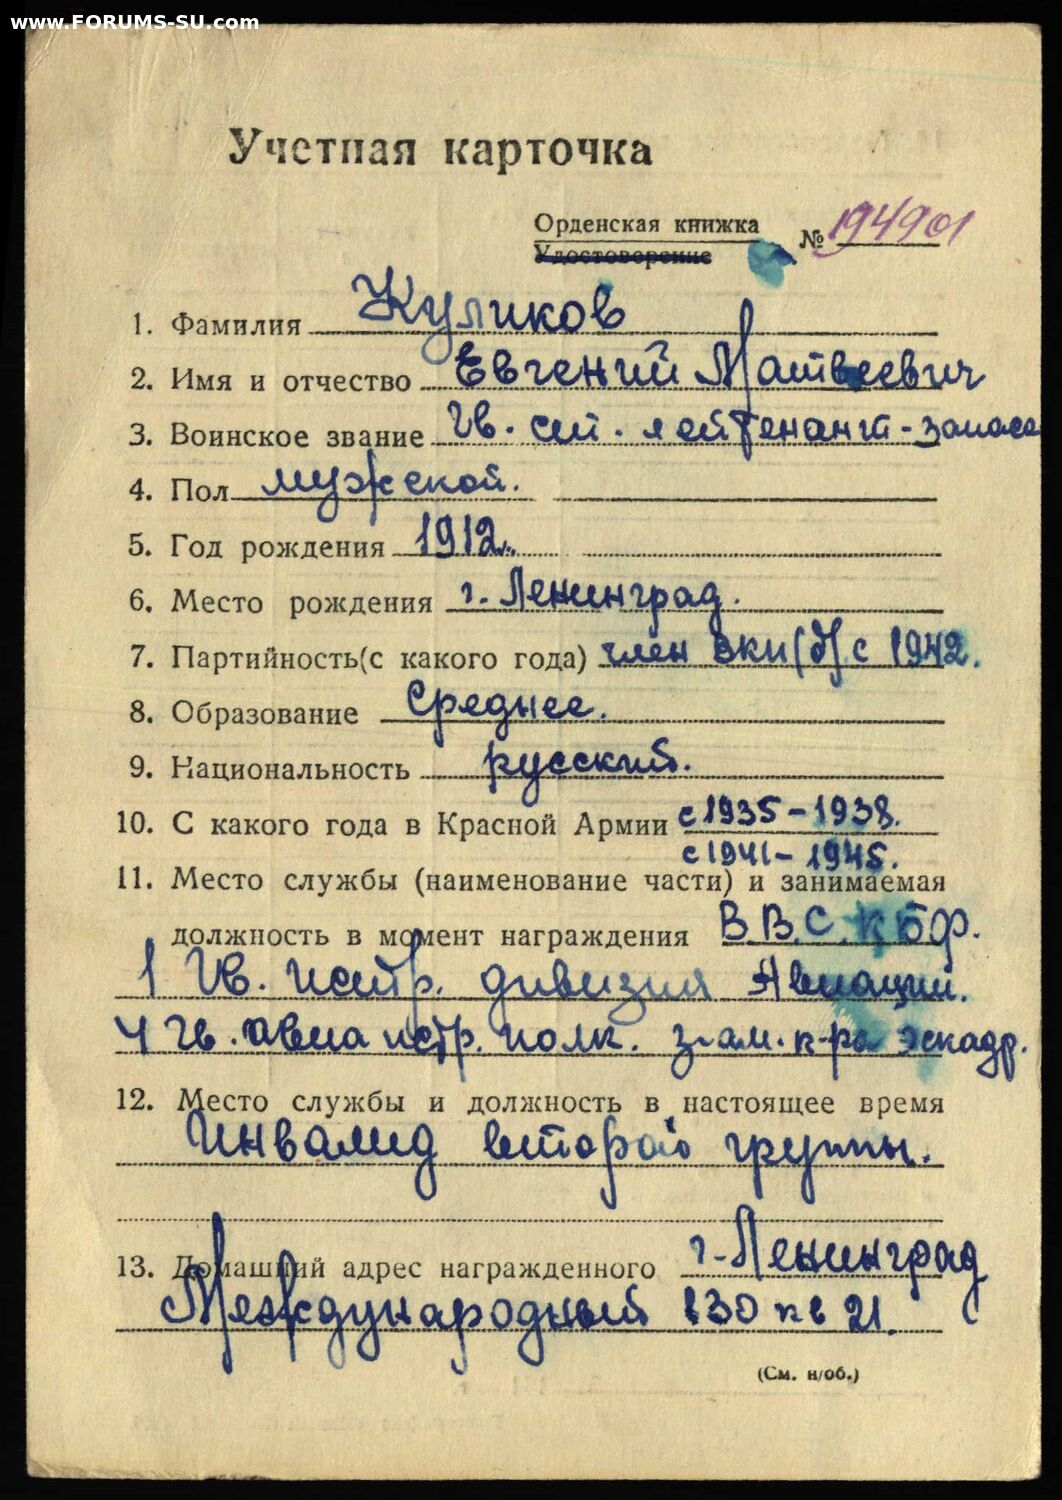 www.FORUMS-SU.com
Учетная карточка
Орденская книжка
Удостоверение
№ 194901
1. Фамилия Куликов
2. Имя и отчество Евгений Матвеевич
3. Воинское звание Гв. ст. лейтенант - запаса
4. Пол мужской.
5. Год рождения 1912.
6. Место рождения г. Ленинград.
7. Партийность(с какого года) член ВКП(б) с 1942.
8. Образование Среднее.
9. Национальность русский.
10. С какого года в Красной Армии с 1935 - 1938.
с 1941 - 1945.
11. Место службы (наименование части) и занимаемая
должность в момент награждения В.В.С. КБФ.
1 Гв. истр. дивизия Авиации.
4 Гв. авиа истр. полк. зам. к-ра эскадр.
12. Место службы и должность в настоящее время
Инвалид второй группы.
13. Домашний адрес награжденного г. Ленинград
Международный 130 кв 21.
(См. н/об.)